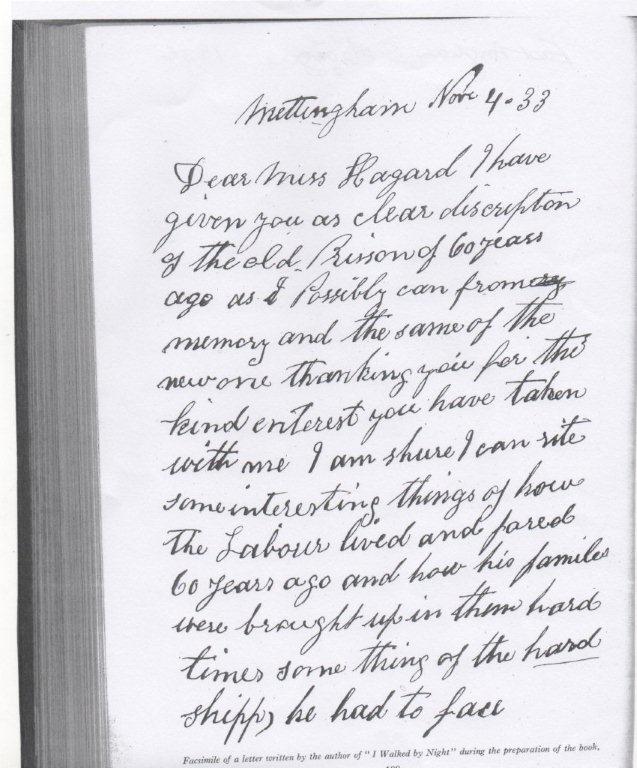 Mettingham Nove 4-33
Dear Miss Hagard I have
given you as clear discripton
of the old Prisson of 60 years
ago as I Possibly can from
memory and the same of the
new one thanking you for the
kind enterest you have taken
with me I am shure I can rite
some interesting things of how
the Labour lived and fared
60 years ago and how his familes
were brought up in them hard
times some thing of the hard
shipp, he had to face
Facsimile of a letter written by the author of "I Walked by Night" during the preparation of the book.